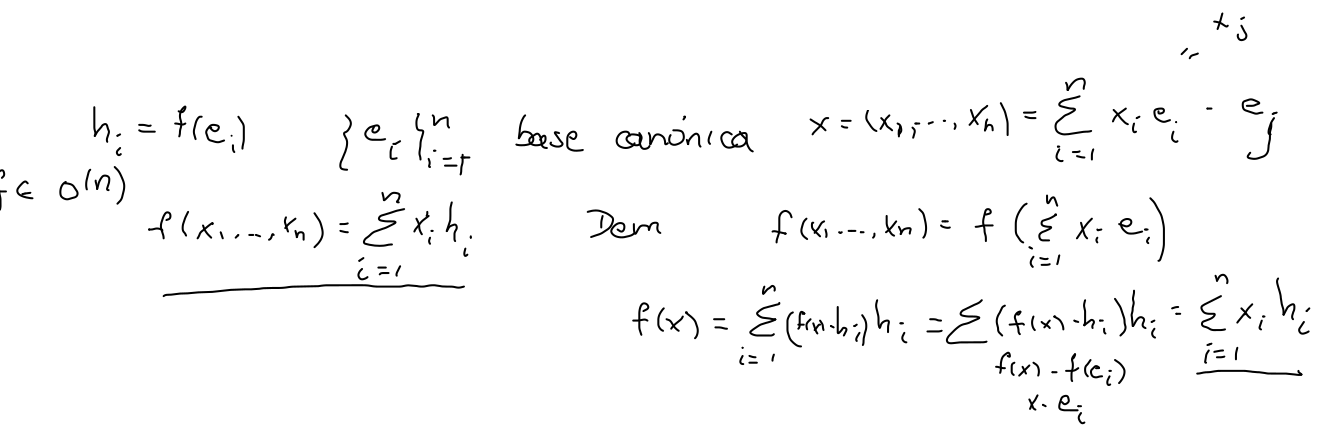 " x_j
h_i = f(e_i) {e_i}_{i=1}^n base canónica x = (x_1, ..., x_n) = \sum_{i=1}^n x_i e_i · e_j
f ∈ O(n)
f(x_1, ..., x_n) = \sum_{i=1}^n x_i h_i Dem f(x_1, ..., x_n) = f(\sum_{i=1}^n x_i e_i)
f(x) = \sum_{i=1}^n (f(x)·h_i) h_i = \sum (f(x)·h_i) h_i = \sum_{i=1}^n x_i h_i
f(x) · f(e_i)
x · e_i